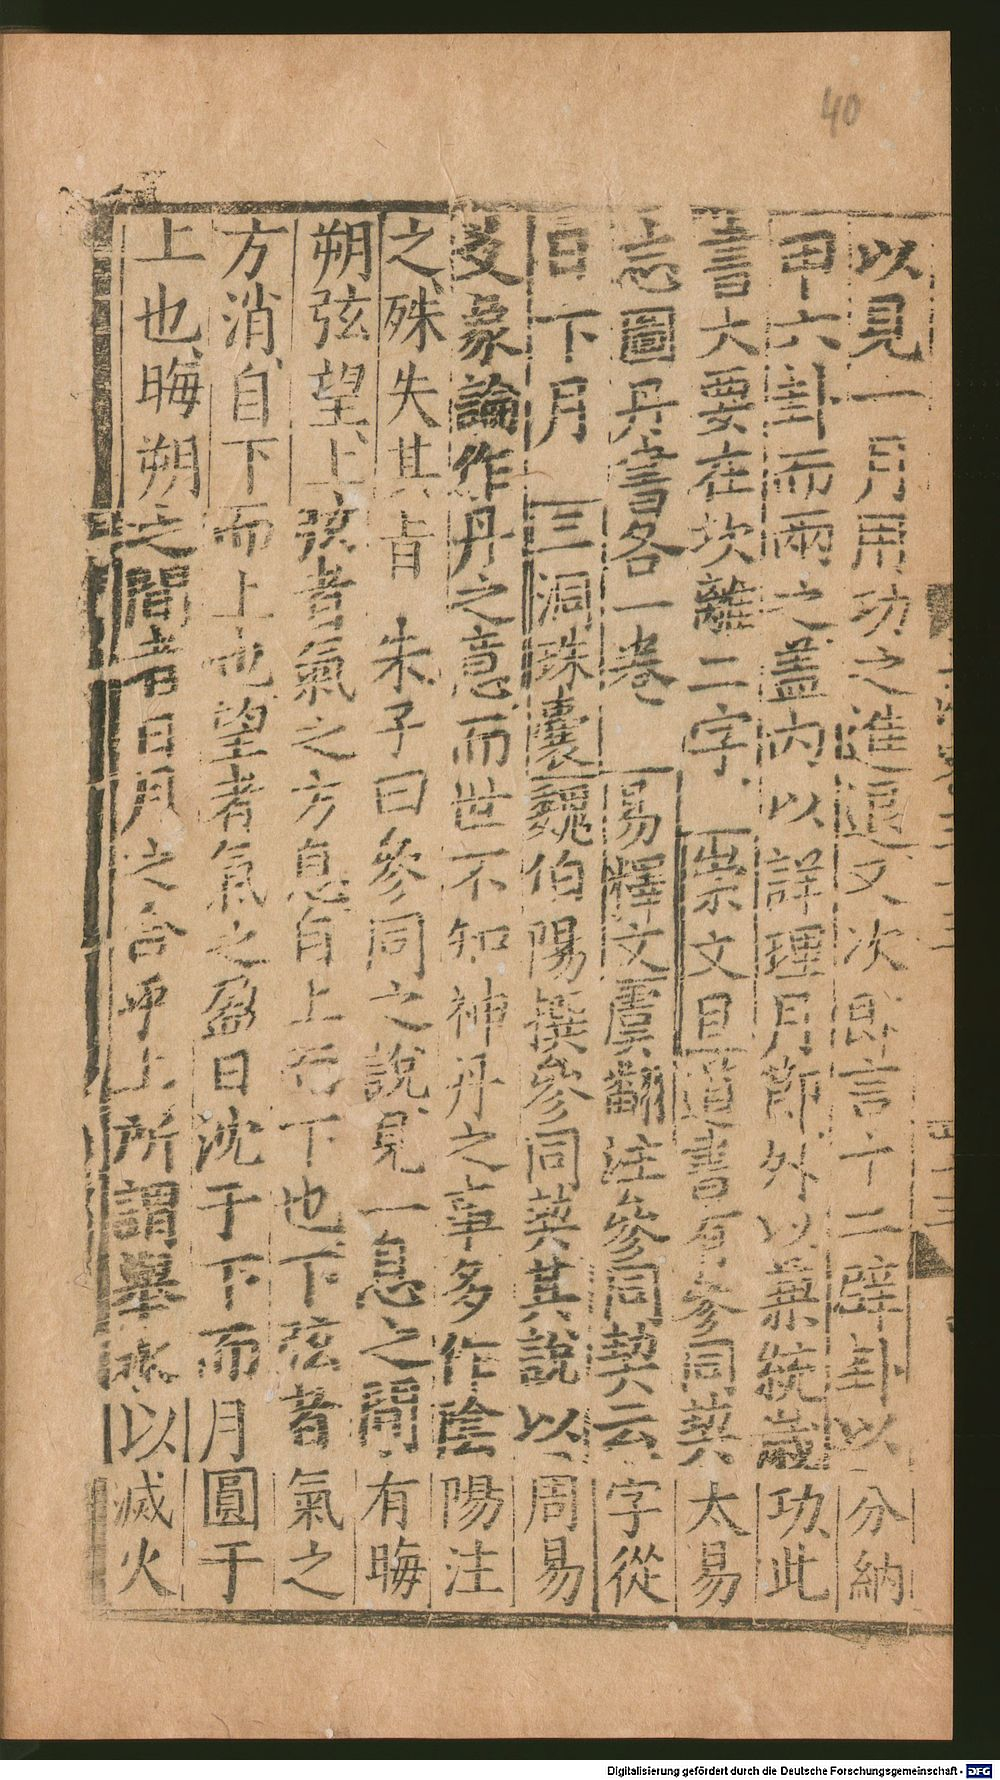 40
以見一月用功之進退又次即言十二辟卦以分納
甲六卦而兩之蓋內以詳理月節外以兼統歲功此
書大要在坎離二字 崇文目道書有參同契太易
志圖丹書各一卷 易釋文虞翻注參同契云字從
日下月 三洞珠囊魏伯陽撰參同契其說以周易
爻象論作丹之意而世不知神丹之事多作陰陽注
之殊失其旨 朱子曰參同之說見一息之間有晦
朔弦望上弦者氣之方息自上而下也下弦者氣之
方消自下而上也望者氣之盈日沈于下而月圓于
上也晦朔之間者日月之合乎上所謂舉水以滅火
Digitalisierung gefördert durch die Deutsche Forschungsgemeinschaft - DFG